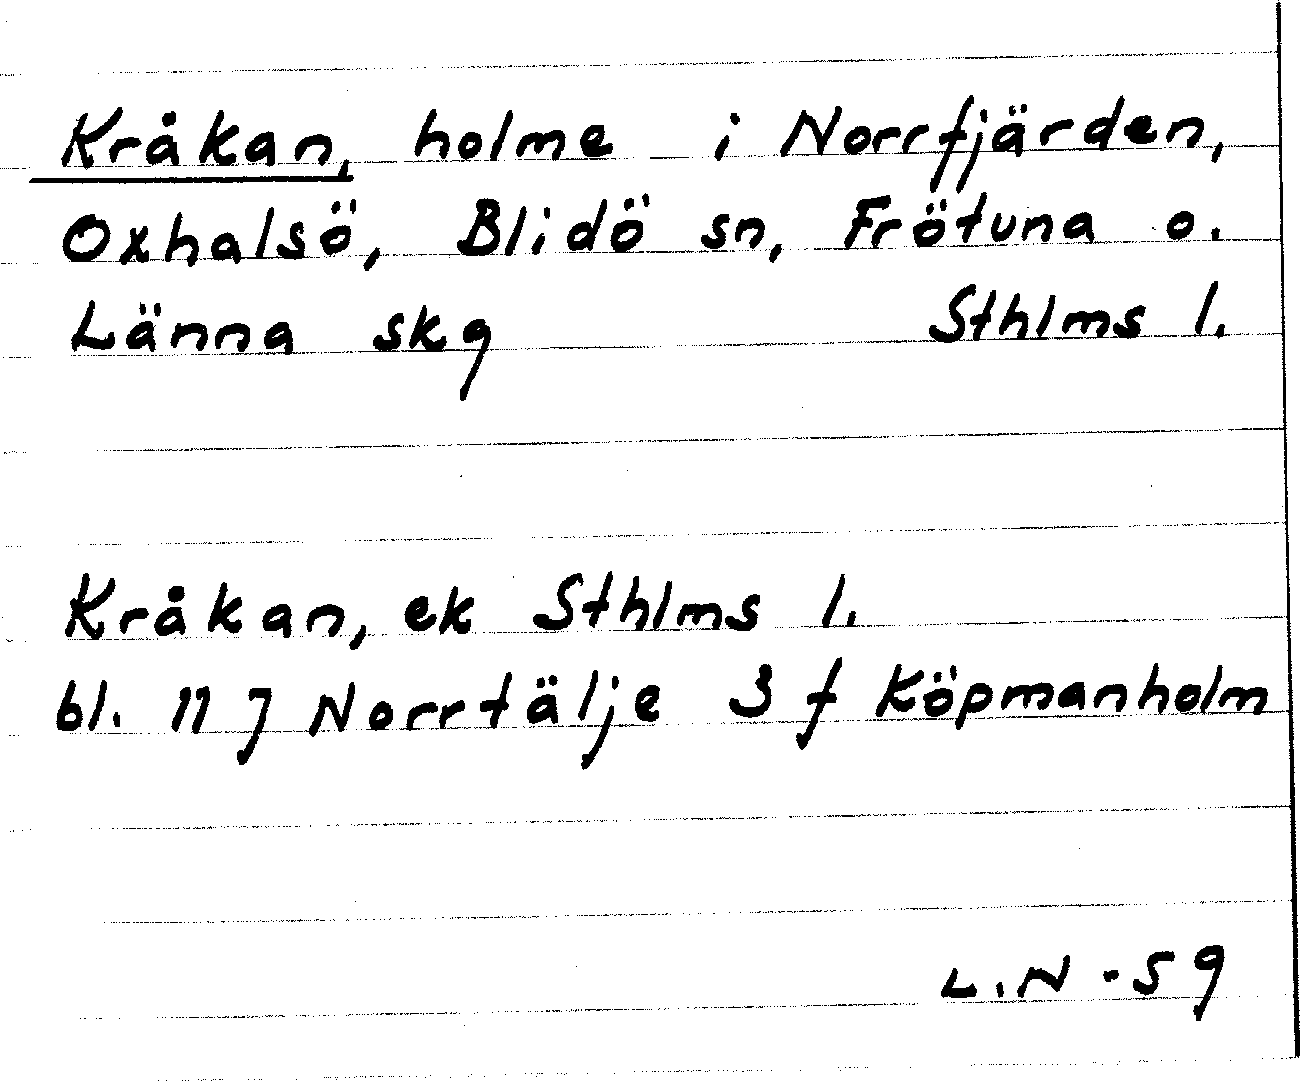 Kråkan, holme i Norrfjärden,
Oxhalsö, Blidö sn, Frötuna o.
Länna skg Sthlms l.
Kråkan, ek Sthlms l.
bl. 11 J Norrtälje 3 f Köpmanholm
L.N - 59